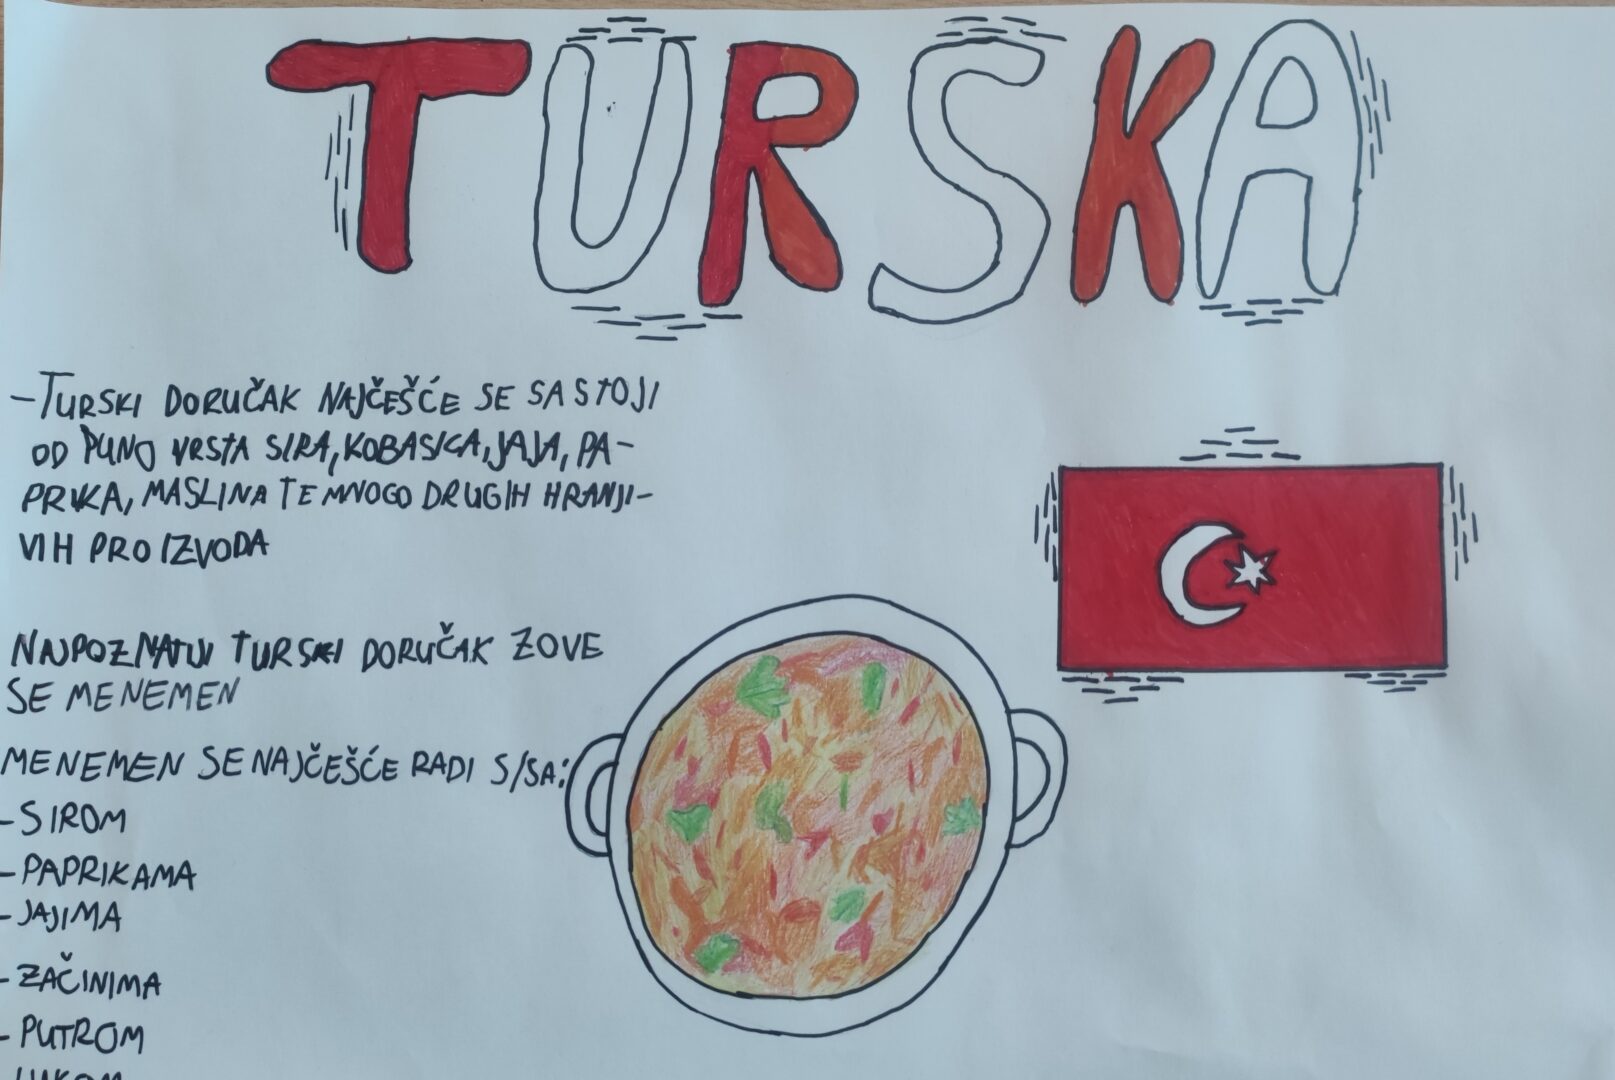 TURSKA
-TURSKI DORUČAK NAJČEŠĆE SE SASTOJI
OD PUNO VRSTA SIRA, KOBASICA, JAJA, PA-
PRIKA, MASLINA TE MNOGO DRUGIH HRANJI-
VIH PROIZVODA
NAJPOZNATIJI TURSKI DORUČAK ZOVE
SE MENEMEN
MENEMEN SE NAJČEŠĆE RADI S/SA:
-SIROM
-PAPRIKAMA
-JAJIMA
-ZAČINIMA
-PUTROM
LUKOM